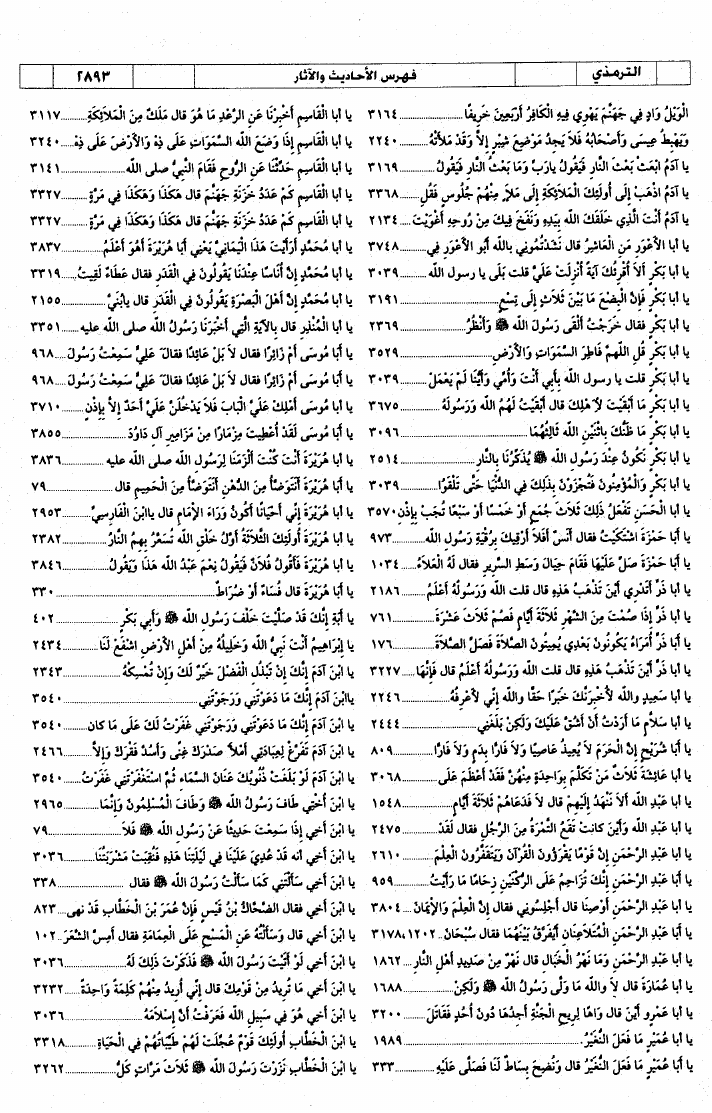 الترمذي فهرس الأحاديث والآثار ٢٨٩٣
الْوَيْلُ وَادٍ فِي جَهَنَّمَ يَهْوِي فِيهِ الْكَافِرُ أَرْبَعِينَ خَرِيفًا ٣١٦٤
وَيَهْبِطُ عِيسَى وَأَصْحَابُهُ فَلَا يَجِدُ مَوْضِعَ شِبْرٍ إِلاَّ وَقَدْ مَلَأَتْهُ ٢٢٤٠
يا آدَمُ ابْعَثْ بَعْثَ النَّارِ فَيَقُولُ يارَبِّ وَمَا بَعْثُ النَّارِ فَيَقُولُ ٣١٦٩
يا آدَمُ اذْهَبْ إِلَى أُولَئِكَ الْمَلَائِكَةِ إِلَى مَلَإٍ مِنْهُمْ جُلُوسٍ فَقُلِ ٣٣٦٨
يا آدَمُ أَنْتَ الَّذِي خَلَقَكَ الله بِيَدِهِ وَنَفَخَ فِيكَ مِنْ رُوحِهِ أَغْوَيْتَ ٢١٣٤
يا أبا الأَعْوَرِ مَنِ الْعَاشِرُ قال نَشَدْتُمُونِي بالله أَبُو الأَعْوَرِ فِي ٣٧٤٨
يا أبا بَكْرٍ ألاَ أُقْرِئُكَ آيَةً أُنْزِلَتْ عَلَيَّ قلت بَلَى يا رسول الله ٣٠٣٩
يا أبا بَكْرٍ فَإِنَّ الْبِضْعَ مَا بَيْنَ ثَلَاثٍ إِلَى تِسْعٍ ٣١٩١
يا أبا بَكْرٍ فقال خَرَجْتُ أَلْقَى رَسُولَ الله ﷺ وَأَنْظُرُ ٢٣٦٩
يا أبا بَكْرٍ قُلِ اللهمَّ فَاطِرَ السَّمَوَاتِ وَالأَرْضِ ٣٥٢٩
يا أبا بَكْرٍ قلت يا رسول الله بِأَبِي أَنْتَ وَأُمِّي وَأَيُّنَا لَمْ يَعْمَلْ ٣٠٣٩
يا أبا بَكْرٍ مَا أَبْقَيْتَ لأَهْلِكَ قال أَبْقَيْتُ لَهُمُ الله وَرَسُولَهُ ٣٦٧٥
يا أبا بَكْرٍ مَا ظَنُّكَ بِاثْنَيْنِ الله ثَالِثُهُمَا ٣٠٩٦
يا أبا بَكْرٍ نَكُونُ عِنْدَ رَسُولِ الله ﷺ يُذَكِّرُنَا بِالنَّارِ ٢٥١٤
يا أبا بَكْرٍ وَالْمُؤْمِنُونَ فَتُجْزَوْنَ بِذَلِكَ فِي الدُّنْيَا حَتَّى تَلْقَوُا ٣٠٣٩
يا أبا الْحَسَنِ تَفْعَلُ ذَلِكَ ثَلَاثَ جُمَعٍ أَوْ خَمْسًا أَوْ سَبْعًا تُجَبْ بِإِذْنِ ٣٥٧٠
يا أَبَا حَمْزَةَ اشْتَكَيْتُ فقال أَنَسٌ أَفَلَا أَرْقِيكَ بِرُقْيَةِ رَسُولِ الله ٩٧٣
يا أبا حَمْزَةَ صَلِّ عَلَيْهَا فَقَامَ حِيَالَ وَسَطِ السَّرِيرِ فقال لَهُ الْعَلَاءُ ١٠٣٤
يا أبا ذَرٍّ أَتَدْرِي أَيْنَ تَذْهَبُ هَذِهِ قال قلت الله وَرَسُولُهُ أَعْلَمُ ٢١٨٦
يا أَبَا ذَرٍّ إِذَا صُمْتَ مِنَ الشَّهْرِ ثَلَاثَةَ أَيَّامٍ فَصُمْ ثَلَاثَ عَشْرَةَ ٧٦١
يا أَبَا ذَرٍّ أُمَرَاءُ يَكُونُونَ بَعْدِي يُمِيتُونَ الصَّلَاةَ فَصَلِّ الصَّلَاةَ ١٧٦
يا أبا ذَرٍّ أَيْنَ تَذْهَبُ هَذِهِ قال قلت الله وَرَسُولُهُ أَعْلَمُ قال فَإِنَّهَا ٣٢٢٧
يا أبا سَعِيدٍ وَالله لَأُخْبِرَنَّكَ خَبَرًا حَقًّا وَالله إِنِّي لَأَعْرِفُهُ ٢٢٤٦
يا أبا سَلاَّمٍ مَا أَرَدْتُ أَنْ أَشُقَّ عَلَيْكَ وَلَكِنْ بَلَغَنِي ٢٤٤٤
يا أَبَا شُرَيْحٍ إِنَّ الْحَرَمَ لَا يُعِيذُ عَاصِيًا وَلَا فَارًّا بِدَمٍ وَلَا فَارًّا ٨٠٩
يا أبا عَائِشَةَ ثَلَاثٌ مَنْ تَكَلَّمَ بِوَاحِدَةٍ مِنْهُنَّ فَقَدْ أَعْظَمَ عَلَى ٣٠٦٨
يا أبا عَبْدِ الله أَلاَ نَنْهَدُ إِلَيْهِمْ قال لَا فَدَعَاهُمْ ثَلَاثَةَ أَيَّامٍ ١٥٤٨
يا أبا عَبْدِ الله وَأَيْنَ كانت تَقَعُ التَّمْرَةُ مِنَ الرَّجُلِ فقال لَقَدْ ٢٤٧٥
يا أبا عَبْدِ الرَّحْمَنِ إِنَّ قَوْمًا يَقْرَؤُونَ الْقُرْآنَ وَيَتَقَفَّرُونَ الْعِلْمَ ٢٦١٠
يا أَبَا عَبْدِ الرَّحْمَنِ إِنَّكَ تُزَاحِمُ عَلَى الرُّكْنَيْنِ زِحَامًا مَا رَأَيْتُ ٩٥٩
يا أبا عَبْدِ الرَّحْمَنِ أَوْصِنَا قال أَجْلِسُونِي فقال إِنَّ الْعِلْمَ وَالإِيمَانَ ٣٨٠٤
يا أبا عَبْدِ الرَّحْمَنِ الْمُتَلَاعِنَانِ أَيُفَرَّقُ بَيْنَهُمَا فقال سُبْحَانَ ٣١٧٨،١٢٠٢
يا أبا عَبْدِ الرَّحْمَنِ وَمَا نَهْرُ الْخَبَالِ قال نَهْرٌ مِنْ صَدِيدِ أَهْلِ النَّارِ ١٨٦٢
يا أبا عُمَارَةَ قال لَا وَالله مَا وَلَّى رَسُولُ الله ﷺ وَلَكِنْ ١٦٨٨
يا أبا عَمْرٍو أَيْنَ قال وَاهًا لِرِيحِ الْجَنَّةِ أَجِدُهَا دُونَ أُحُدٍ فَقَاتَلَ ٣٢٠٠
يا أبا عُمَيْرٍ مَا فَعَلَ النُّغَيْرُ ١٩٨٩
يا أَبَا عُمَيْرٍ مَا فَعَلَ النُّغَيْرُ قال وَنُضِحَ بِسَاطٌ لَنَا فَصَلَّى عَلَيْهِ ٣٣٣
يا أبا الْقَاسِمِ أَخْبِرْنَا عَنِ الرَّعْدِ مَا هُوَ قال مَلَكٌ مِنَ الْمَلَائِكَةِ ٣١١٧
يا أبا الْقَاسِمِ إِذَا وَضَعَ الله السَّمَوَاتِ عَلَى ذِهْ وَالأَرْضَ عَلَى ذِهْ ٣٢٤٠
يا أبا الْقَاسِمِ حَدِّثْنَا عَنِ الرُّوحِ فَقَامَ النَّبِيُّ صلى الله ٣١٤١
يا أبا الْقَاسِمِ كَمْ عَدَدُ خَزَنَةِ جَهَنَّمَ قال هَكَذَا وَهَكَذَا فِي مَرَّةٍ ٣٣٢٧
يا أبا الْقَاسِمِ كَمْ عَدَدُ خَزَنَةِ جَهَنَّمَ قال هَكَذَا وَهَكَذَا فِي مَرَّةٍ ٣٣٢٧
يا أبا مُحَمَّدٍ أَرَأَيْتَ هَذَا الْيَمَانِيَّ يَعْنِي أَبَا هُرَيْرَةَ أَهُوَ أَعْلَمُ ٣٨٣٧
يا أبا مُحَمَّدٍ إِنَّ أُنَاسًا عِنْدَنَا يَقُولُونَ فِي الْقَدَرِ فقال عَطَاءٌ لَقِيتُ ٣٣١٩
يا أبا مُحَمَّدٍ إِنَّ أَهْلَ الْبَصْرَةِ يَقُولُونَ فِي الْقَدَرِ قال يابُنَيَّ ٢١٥٥
يا أبا الْمُنْذِرِ قال بِالآيَةِ الَّتِي أَخْبَرَنَا رَسُولُ الله صلى الله عليه ٣٣٥١
يا أَبَا مُوسَى أَمْ زَائِرًا فقال لَا بَلْ عَائِدًا فقال عَلِيٌّ سَمِعْتُ رَسُولَ ٩٦٨
يا أَبَا مُوسَى أَمْ زَائِرًا فقال لَا بَلْ عَائِدًا فقال عَلِيٌّ سَمِعْتُ رَسُولَ ٩٦٨
يا أبا مُوسَى أَمْلِكْ عَلَيَّ الْبَابَ فَلَا يَدْخُلَنَّ عَلَيَّ أَحَدٌ إِلاَّ بِإِذْنٍ ٣٧١٠
يا أبا مُوسَى لَقَدْ أُعْطِيتَ مِزْمَارًا مِنْ مَزَامِيرِ آلِ دَاوُدَ ٣٨٥٥
يا أَبَا هُرَيْرَةَ أَنْتَ كُنْتَ أَلْزَمَنَا لِرَسُولِ الله صلى الله عليه ٣٨٣٦
يا أَبَا هُرَيْرَةَ أَنَتَوَضَّأُ مِنَ الدُّهْنِ أَنَتَوَضَّأُ مِنَ الْحَمِيمِ قال ٧٩
يا أَبَا هُرَيْرَةَ إِنِّي أَحْيَانًا أَكُونُ وَرَاءَ الإِمَامِ قال ياابْنَ الْفَارِسِيِّ ٢٩٥٣
يا أبا هُرَيْرَةَ أُولَئِكَ الثَّلَاثَةُ أَوَّلُ خَلْقِ الله تُسَعَّرُ بِهِمُ النَّارُ ٢٣٨٢
يا أبا هُرَيْرَةَ فَأَقُولُ فُلَانٌ فَيَقُولُ نِعْمَ عَبْدُ الله هَذَا وَيَقُولُ ٣٨٤٦
يا أَبَا هُرَيْرَةَ قال فُسَاءٌ أَوْ ضُرَاطٌ ٣٣٠
يا أَبَةِ إِنَّكَ قَدْ صَلَّيْتَ خَلْفَ رَسُولِ الله ﷺ وَأَبِي بَكْرٍ ٤٠٢
يا إِبْرَاهِيمُ أَنْتَ نَبِيُّ الله وَخَلِيلُهُ مِنْ أَهْلِ الأَرْضِ اشْفَعْ لَنَا ٢٤٣٤
يا ابْنَ آدَمَ إِنَّكَ إِنْ تَبْذُلِ الْفَضْلَ خَيْرٌ لَكَ وَإِنْ تُمْسِكْهُ ٢٣٤٣
ياابْنَ آدَمَ إِنَّكَ مَا دَعَوْتَنِي وَرَجَوْتَنِي ٣٥٤٠
يا ابْنَ آدَمَ إِنَّكَ مَا دَعَوْتَنِي وَرَجَوْتَنِي غَفَرْتُ لَكَ عَلَى مَا كان ٣٥٤٠
يا ابْنَ آدَمَ تَفَرَّغْ لِعِبَادَتِي أَمْلأْ صَدْرَكَ غِنًى وَأَسُدَّ فَقْرَكَ وَإِلاَّ ٢٤٦٦
يا ابْنَ آدَمَ لَوْ بَلَغَتْ ذُنُوبُكَ عَنَانَ السَّمَاءِ ثُمَّ اسْتَغْفَرْتَنِي غَفَرْتُ ٣٥٤٠
يا ابْنَ أُخْتِي طَافَ رَسُولُ الله ﷺ وَطَافَ الْمُسْلِمُونَ وَإِنَّمَا ٢٩٦٥
يا ابْنَ أَخِي إِذَا سَمِعْتَ حَدِيثًا عَنْ رَسُولِ الله ﷺ فَلَا ٧٩
يا ابْنَ أَخِي أنه قَدْ عُدِيَ عَلَيْنَا فِي لَيْلَتِنَا هَذِهِ فَنُقِبَتْ مَشْرَبَتُنَا ٣٠٣٦
يا ابْنَ أَخِي سَأَلْتَنِي كَمَا سَأَلْتُ رَسُولَ الله ﷺ فقال ٣٣٨
يا ابْنَ أَخِي فقال الضَّحَّاكُ بْنُ قَيْسٍ فَإِنَّ عُمَرَ بْنَ الْخَطَّابِ قَدْ نهى ٨٢٣
يا ابْنَ أَخِي قال وَسَأَلْتُهُ عَنِ الْمَسْحِ عَلَى الْعِمَامَةِ فقال أَمِسَّ الشَّعَرَ ١٠٢
يا ابْنَ أَخِي لَوْ أَتَيْتَ رَسُولَ الله ﷺ فَذَكَرْتَ ذَلِكَ لَهُ ٣٠٣٦
يا ابْنَ أَخِي مَا تُرِيدُ مِنْ قَوْمِكَ قال إِنِّي أُرِيدُ مِنْهُمْ كَلِمَةً وَاحِدَةً ٣٢٣٢
يا ابْنَ أَخِي هُوَ فِي سَبِيلِ الله فَعَرَفْتُ أَنَّ إِسْلَامَهُ ٣٠٣٦
يا ابْنَ الْخَطَّابِ أُولَئِكَ قَوْمٌ عُجِّلَتْ لَهُمْ طَيِّبَاتُهُمْ فِي الْحَيَاةِ ٣٣١٨
يا ابْنَ الْخَطَّابِ نَزَرْتَ رَسُولَ الله ﷺ ثَلَاثَ مَرَّاتٍ كُلُّ ٣٢٦٢